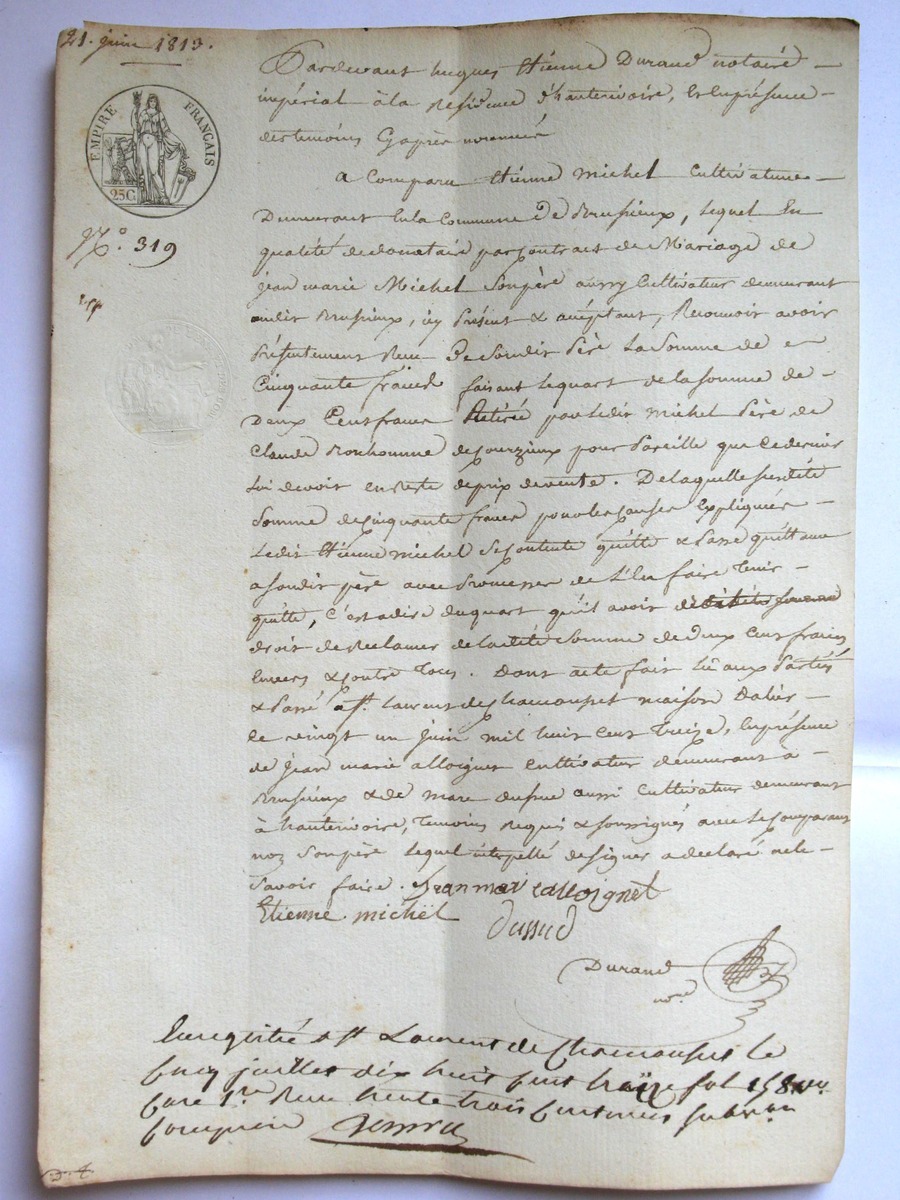 21. juin 1813.
EMPIRE FRANÇAIS
25 C.
N.° 319
Pardevant hugues Etienne Durand notaire
impérial à la Residence d'hauterivoire, En présence
des temoins Cy après nommés
a Comparu Etienne Michel Cultivateur
Demeurant En la Commune de Brusieux, lequel En
qualité de donataire par Contract de Mariage de
jean marie Michel Son père aussy Cultivateur demeurant
audit Brusieux, icy Présent & acceptant, Reconnoit avoir
Présentement Reçu De Soudit Père La Somme de
Cinquante francs faisant le quart de la somme de
Deux Cent francs Retirée par ledit Michel Père de
Claude Bonhomme de Courzieux pour Pareille que Ce dernier
lui devoit en Reste de prix de vente. De laquelle susdite
Somme de Cinquante francs pour les Causes Expliquées
Ledit Etienne Michel Se Contente quitte & Passe quittance
a Soudit père avec Promesses de L'En faire Tenir
quitte, C'est a dire du quart qu'il avoit
droit de Reclamer de la dité Somme de Deux Cent francs
Envers & Contre Tous. Dont acte fait lû aux Parties
& Passé à St. Laurent de Chamousset maison Dalier
Le vingt un juin mil huit Cent Treize, En présence
de Jean marie alloignet Cultivateur demeurant à
Brusieux & de Marc dussud aussi Cultivateur demeurant
à hauterivoire, Temoins Requis & Soussignés avec le Comparant
non Son père Lequel interpellé de signer a declaré ne le
Savoir faire. Jean marie alloignet
Etienne Michel
Dussud
Durand
no.re
Enregistré à St Laurent de Chamousset le
Cinq juillet dix huit Cent treize fol 158 v.
Case 1.re Reçu trente trois Centimes subvon
Comprise